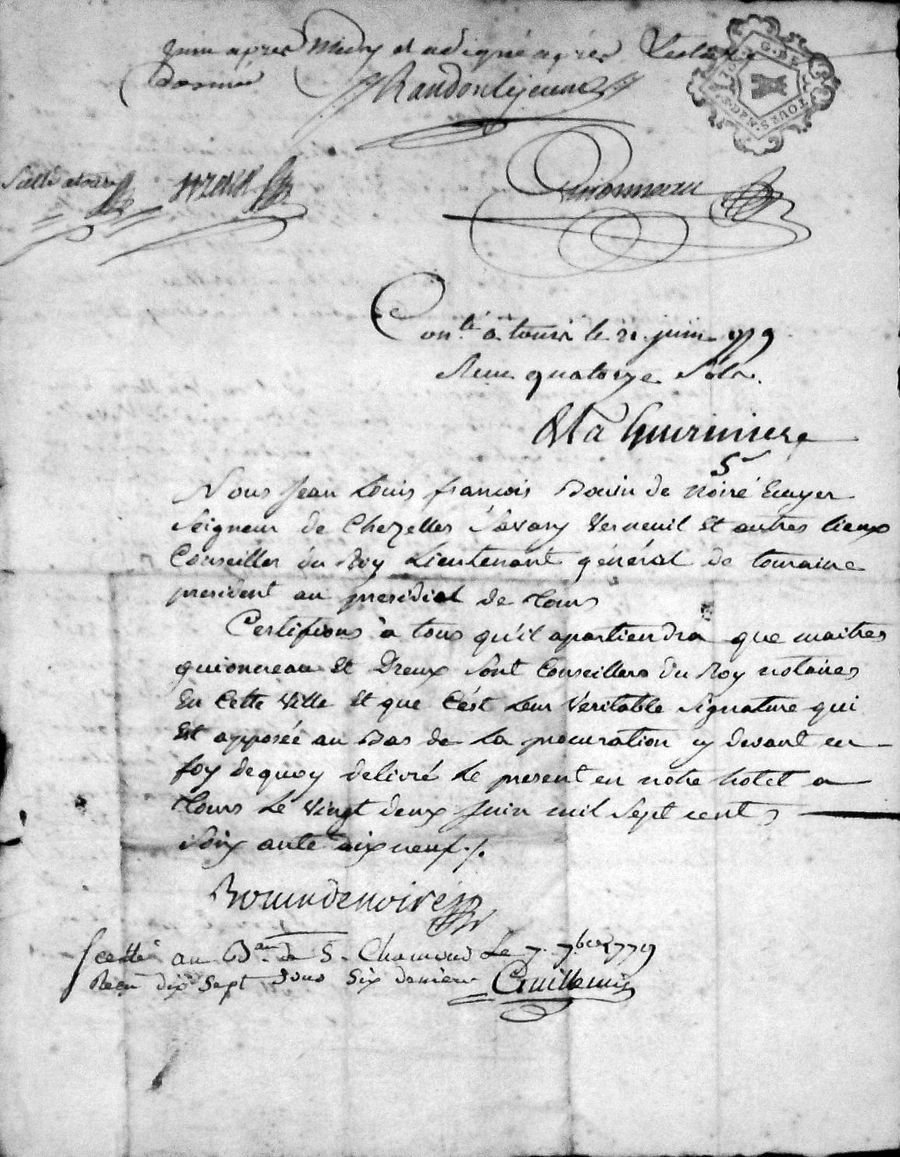 Juin après Midy et a signé après Lecture
Donnée Randon Lejeune
Scellé
Guionneau
Con.lé à tours le 21. juin 1779
Reçu quatorze Sols.
De la Guerinière
Nous Jean Louis françois Bouin de Noiré Ecuyer Sr
Seigneur de Chezelles Savary Verneuil Et autres lieux
Conseiller du Roy Lieutenant général de touraine
president au presidial de Tours
Certifions à tous qu'il apartiendra que maitres
guionneau Et Dreux Sont Conseillers du Roy notaires
En Cette Ville Et que C'est Leur Véritable Signature qui
Est apposée au Bas de La procuration cy devant en
foy dequoy delivré Le present en notre hotel a
Tours Le Vingt deux Juin mil Sept cent
Soix ante dix neuf ./.
Bouin de noiré
Scellé au B.au de S. Chamond Le 7. 7bre 1779
Reçu dix Sept Sous Six deniers Guillemin